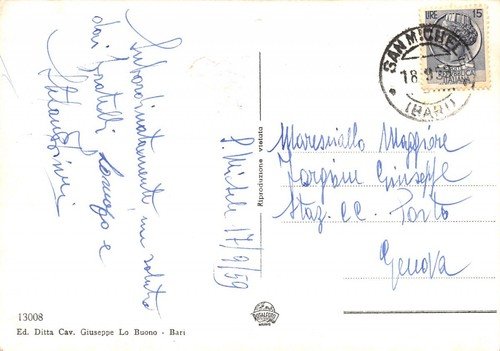 Subordinatamente, un saluto
dai fratelli Lorenzo e
S. Michele 17/9/59
Maresciallo Maggiore
Forgione Giuseppe
Staz. CC. Porto
Genova
LIRE 15
SAN MICHELE
18.9
(BARI)
Riproduzione vietata
13008
Ed. Ditta Cav. Giuseppe Lo Buono - Bari